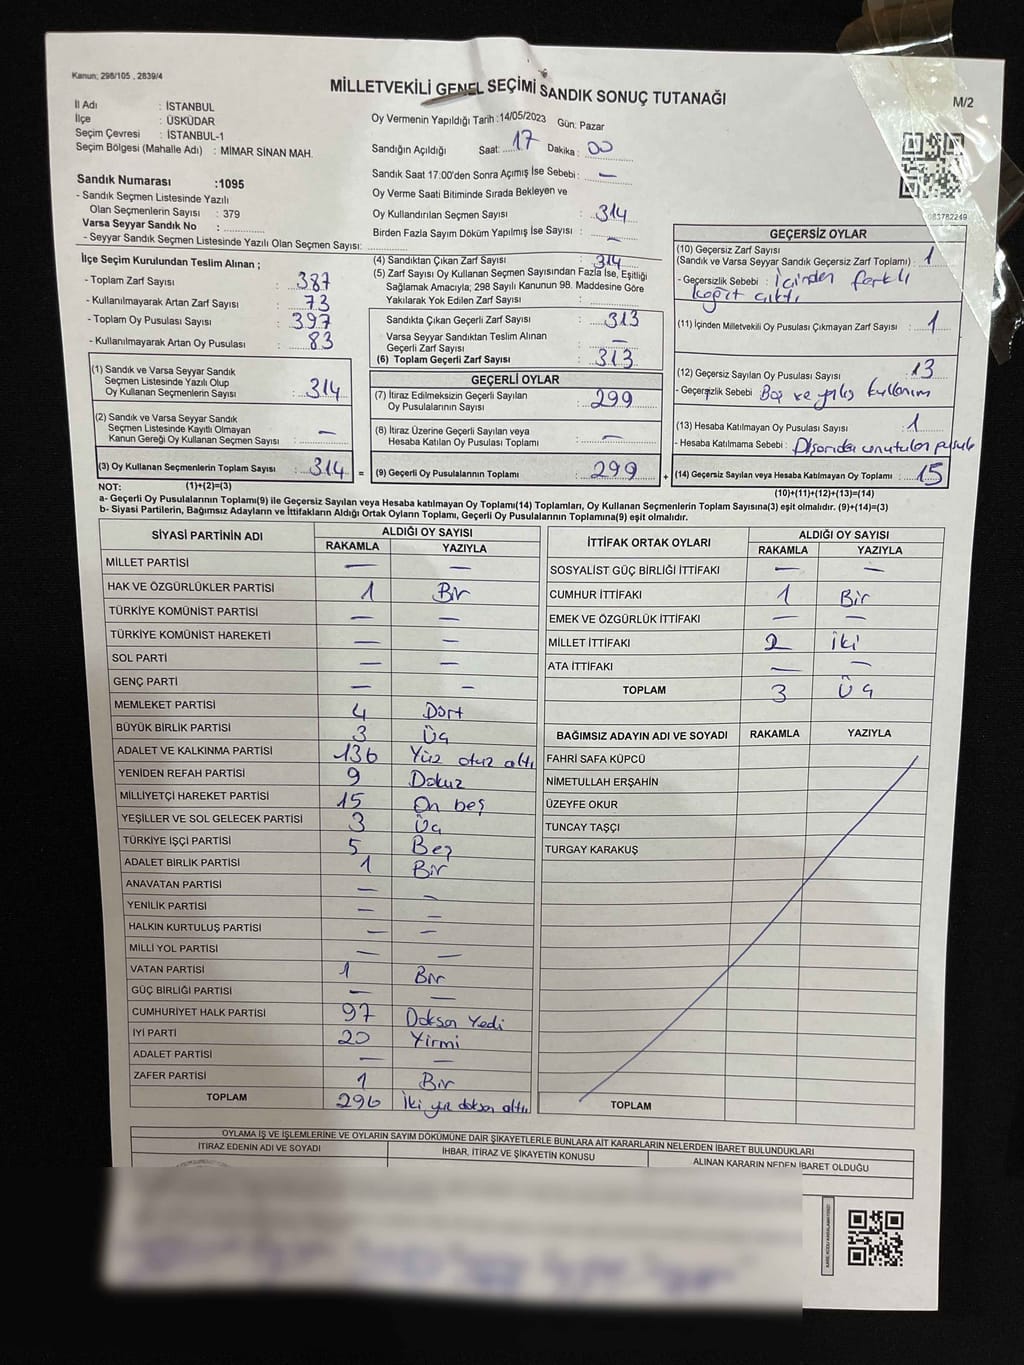 Kanun; 298/105 , 2839/4
MİLLETVEKİLİ GENEL SEÇİMİ SANDIK SONUÇ TUTANAĞI
M/2
İl Adı : İSTANBUL
İlçe : ÜSKÜDAR
Seçim Çevresi : İSTANBUL-1
Seçim Bölgesi (Mahalle Adı) : MİMAR SİNAN MAH.
Sandık Numarası :1095
- Sandık Seçmen Listesinde Yazılı
Olan Seçmenlerin Sayısı : 379
Varsa Seyyar Sandık No :
- Seyyar Sandık Seçmen Listesinde Yazılı Olan Seçmen Sayısı:
Oy Vermenin Yapıldığı Tarih :14/05/2023 Gün: Pazar
Sandığın Açıldığı Saat: 17 Dakika : 00
Sandık Saat 17.00'den Sonra Açımış İse Sebebi : —
Oy Verme Saati Bitiminde Sırada Bekleyen ve
Oy Kullandırılan Seçmen Sayısı : 314
Birden Fazla Sayım Döküm Yapılmış İse Sayısı : —
083782249
İlçe Seçim Kurulundan Teslim Alınan ;
- Toplam Zarf Sayısı : 387
- Kullanılmayarak Artan Zarf Sayısı : 73
- Toplam Oy Pusulası Sayısı : 397
- Kullanılmayarak Artan Oy Pusulası : 83
(1) Sandık ve Varsa Seyyar Sandık
Seçmen Listesinde Yazılı Olup
Oy Kullanan Seçmenlerin Sayısı : 314
(2) Sandık ve Varsa Seyyar Sandık
Seçmen Listesinde Kayıtlı Olmayan
Kanun Gereği Oy Kullanan Seçmen Sayısı : —
(3) Oy Kullanan Seçmenlerin Toplam Sayısı : 314 =
(4) Sandıktan Çıkan Zarf Sayısı : 314
(5) Zarf Sayısı Oy Kullanan Seçmen Sayısından Fazla İse, Eşitliği
Sağlamak Amacıyla; 298 Sayılı Kanunun 98. Maddesine Göre
Yakılarak Yok Edilen Zarf Sayısı :
Sandıkta Çıkan Geçerli Zarf Sayısı : 313
Varsa Seyyar Sandıktan Teslim Alınan
Geçerli Zarf Sayısı : —
(6) Toplam Geçerli Zarf Sayısı : 313
GEÇERLİ OYLAR
(7) İtiraz Edilmeksizin Geçerli Sayılan
Oy Pusulalarının Sayısı : 299
(8) İtiraz Üzerine Geçerli Sayılan veya
Hesaba Katılan Oy Pusulası Toplamı : —
(9) Geçerli Oy Pusulalarının Toplamı : 299 +
GEÇERSİZ OYLAR
(10) Geçersiz Zarf Sayısı
(Sandık ve Varsa Seyyar Sandık Geçersiz Zarf Toplamı) : 1
- Geçersizlik Sebebi : İçinden farklı
kağıt çıktı
(11) İçinden Milletvekili Oy Pusulası Çıkmayan Zarf Sayısı : 1
(12) Geçersiz Sayılan Oy Pusulası Sayısı : 13
- Geçersizlik Sebebi Boş ve yanlış kullanım
(13) Hesaba Katılmayan Oy Pusulası Sayısı : 1
- Hesaba Katılmama Sebebi : Dışarıda unutulan pusula
(14) Geçersiz Sayılan veya Hesaba Katılmayan Oy Toplamı : 15
NOT: (1)+(2)=(3)
(10)+(11)+(12)+(13)=(14)
a- Geçerli Oy Pusulalarının Toplamı(9) ile Geçersiz Sayılan veya Hesaba katılmayan Oy Toplamı(14) Toplamları, Oy Kullanan Seçmenlerin Toplam Sayısına(3) eşit olmalıdır. (9)+(14)=(3)
b- Siyasi Partilerin, Bağımsız Adayların ve İttifakların Aldığı Ortak Oyların Toplamı, Geçerli Oy Pusulalarının Toplamına(9) eşit olmalıdır.
SİYASİ PARTİNİN ADI ALDIĞI OY SAYISI
RAKAMLA YAZIYLA
MİLLET PARTİSİ — —
HAK VE ÖZGÜRLÜKLER PARTİSİ 1 Bir
TÜRKİYE KOMÜNİST PARTİSİ — —
TÜRKİYE KOMÜNİST HAREKETİ — —
SOL PARTİ — —
GENÇ PARTİ — —
MEMLEKET PARTİSİ 4 Dört
BÜYÜK BİRLİK PARTİSİ 3 Üç
ADALET VE KALKINMA PARTİSİ 136 Yüz otuz altı
YENİDEN REFAH PARTİSİ 9 Dokuz
MİLLİYETÇİ HAREKET PARTİSİ 15 On beş
YEŞİLLER VE SOL GELECEK PARTİSİ 3 Üç
TÜRKİYE İŞÇİ PARTİSİ 5 Beş
ADALET BİRLİK PARTİSİ 1 Bir
ANAVATAN PARTİSİ — —
YENİLİK PARTİSİ — —
HALKIN KURTULUŞ PARTİSİ — —
MİLLİ YOL PARTİSİ — —
VATAN PARTİSİ 1 Bir
GÜÇ BİRLİĞİ PARTİSİ — —
CUMHURİYET HALK PARTİSİ 97 Doksan Yedi
İYİ PARTİ 20 Yirmi
ADALET PARTİSİ — —
ZAFER PARTİSİ 1 Bir
TOPLAM 296 İki yüz doksan altı
İTTİFAK ORTAK OYLARI ALDIĞI OY SAYISI
RAKAMLA YAZIYLA
SOSYALİST GÜÇ BİRLİĞİ İTTİFAKI — —
CUMHUR İTTİFAKI 1 Bir
EMEK VE ÖZGÜRLÜK İTTİFAKI — —
MİLLET İTTİFAKI 2 İki
ATA İTTİFAKI — —
TOPLAM 3 Üç
BAĞIMSIZ ADAYIN ADI VE SOYADI RAKAMLA YAZIYLA
FAHRİ SAFA KÜPCÜ
NİMETULLAH ERŞAHİN
ÜZEYFE OKUR
TUNCAY TAŞÇI
TURGAY KARAKUŞ
TOPLAM
OYLAMA İŞ VE İŞLEMLERİNE VE OYLARIN SAYIM DÖKÜMÜNE DAİR ŞİKAYETLERLE BUNLARA AİT KARARLARIN NELERDEN İBARET BULUNDUKLARI
İTİRAZ EDENİN ADI VE SOYADI İHBAR, İTİRAZ VE ŞİKAYETİN KONUSU ALINAN KARARIN NEDEN İBARET OLDUĞU